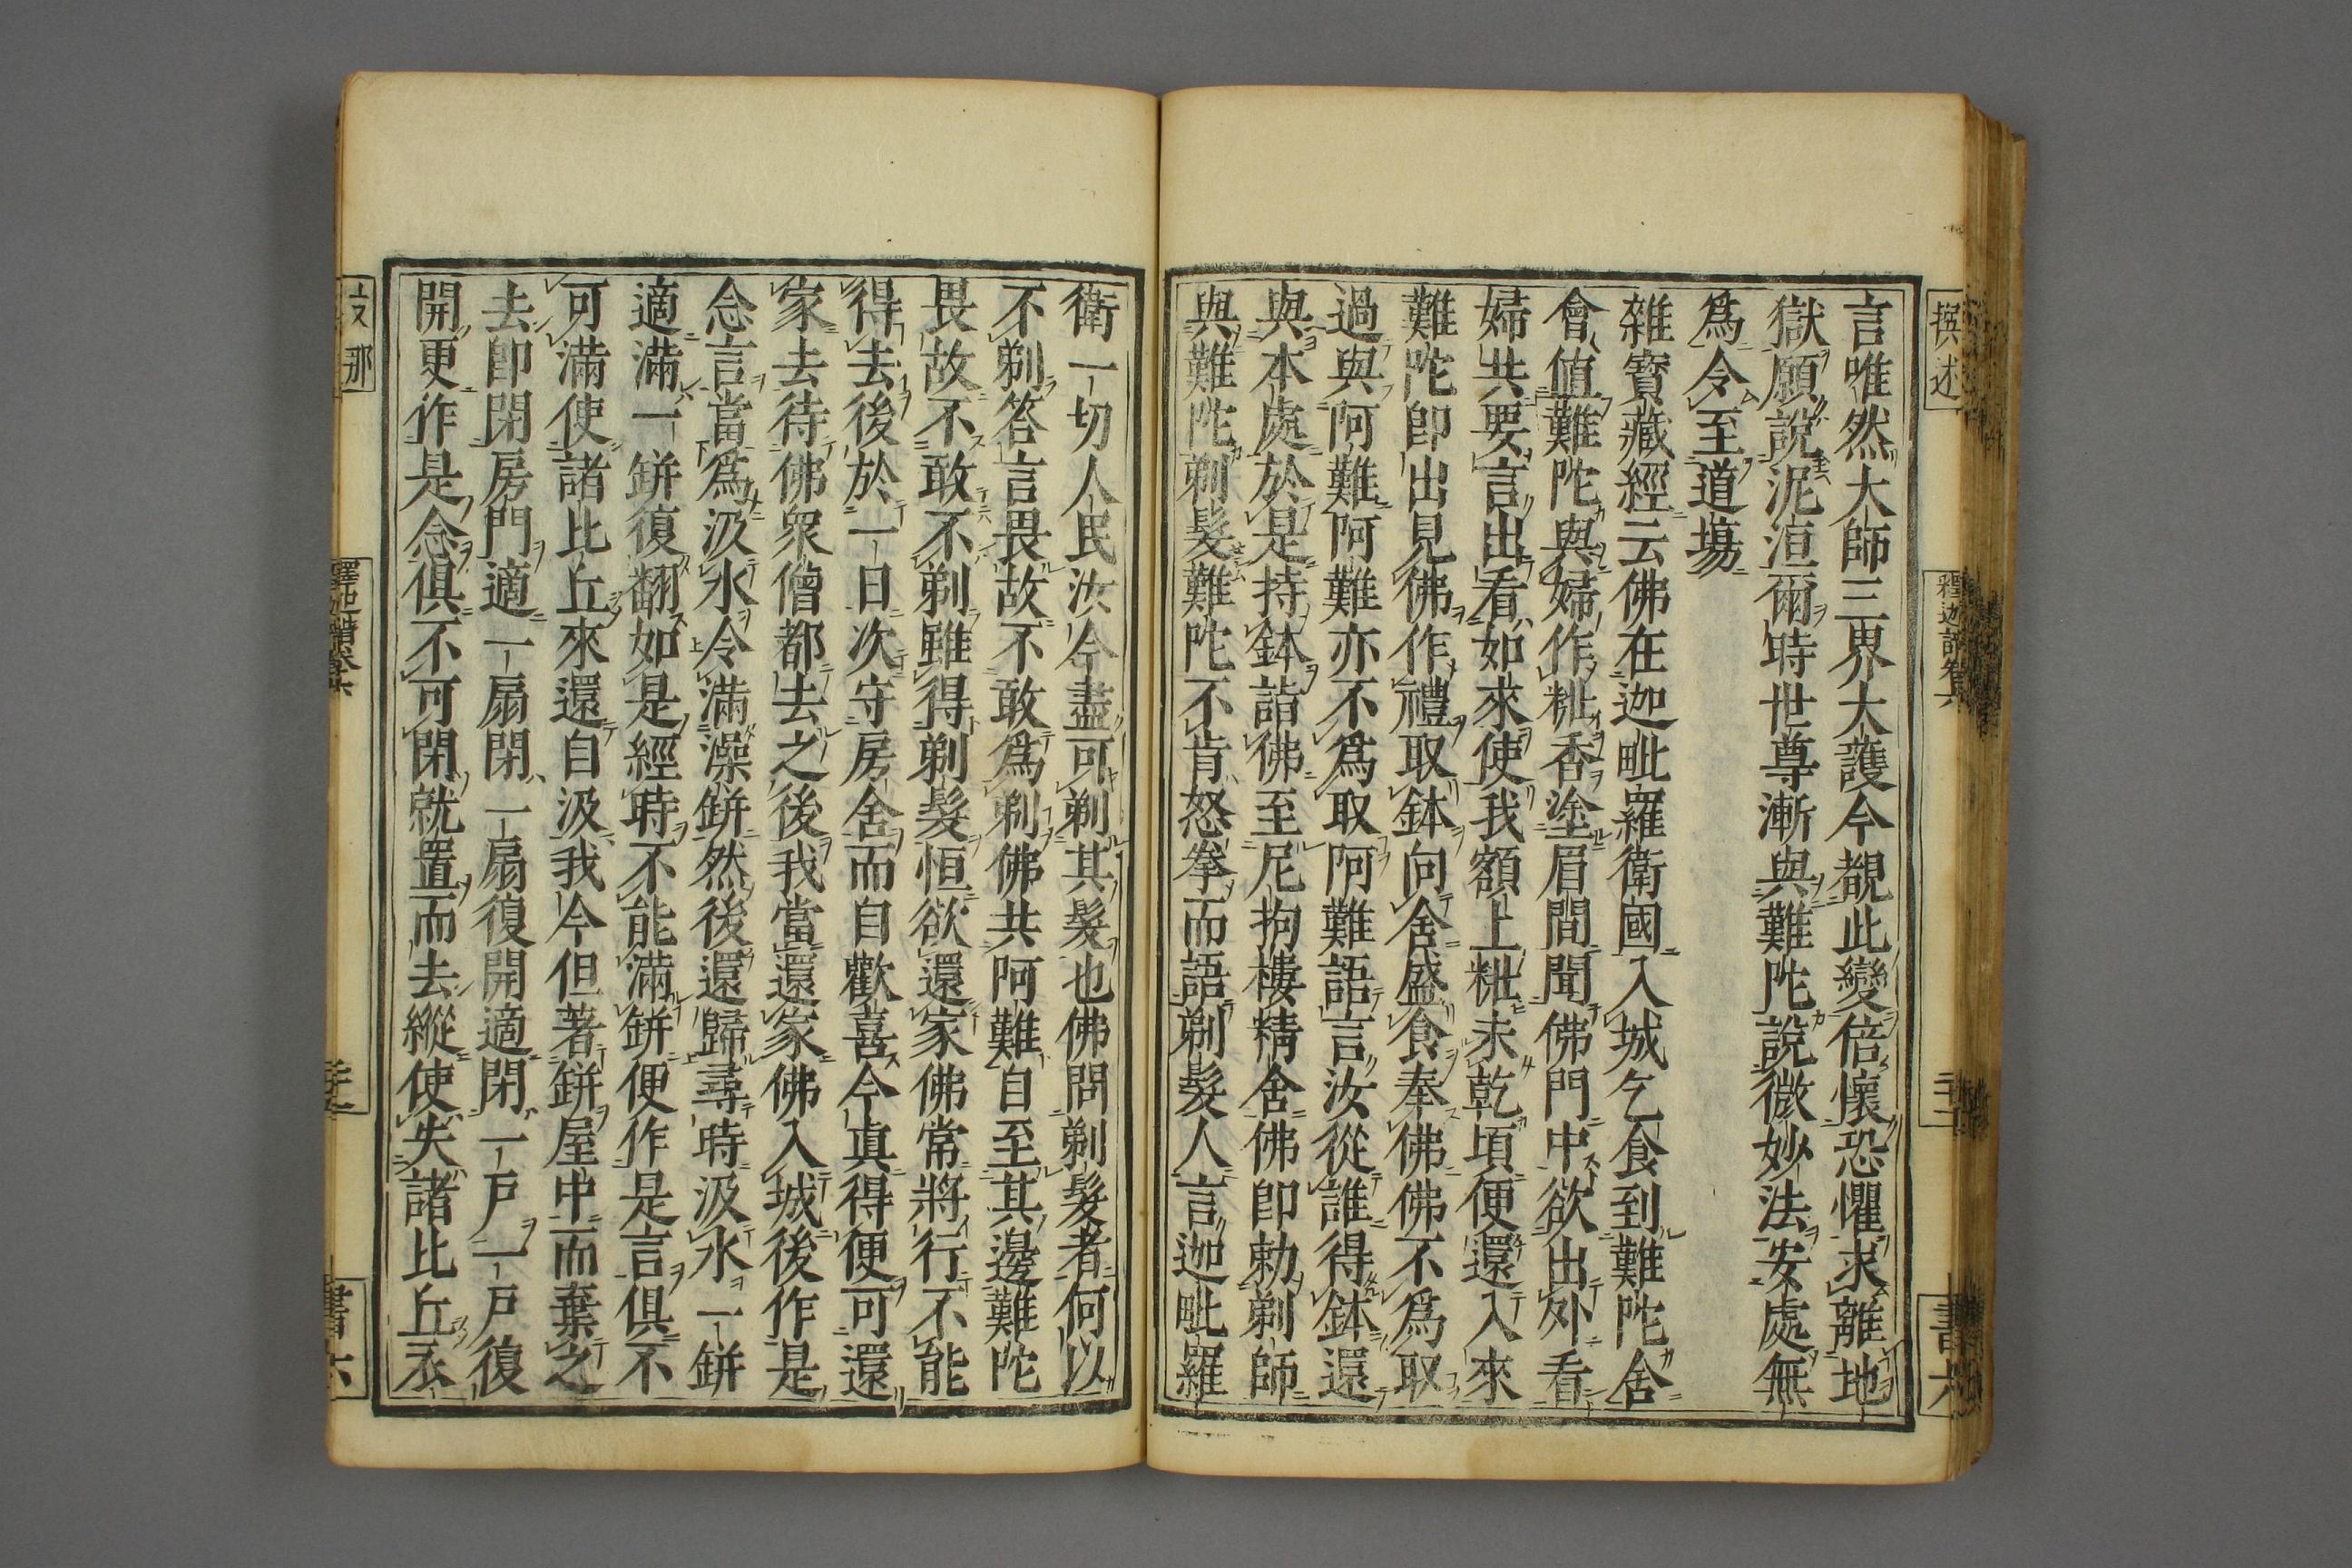 撰述
釋迦譜卷六
二十二
書六
言唯然大師三界大護今覩此變倍懷恐懼求離地
獄願說泥洹爾時世尊漸與難陀說微妙法安處無
爲令至道塲
雜寳藏經云佛在迦毗羅衛國入城乞食到難陀舍
會值難陀與婦作粃香塗眉間聞佛門中欲出外看
婦共要言出看如來使我額上粃未乾頃便還入來
難陀卽出見佛作禮取鉢向舍盛食奉佛佛不爲取
過與阿難阿難亦不爲取阿難語言汝從誰得鉢還
與本處於是持鉢詣佛至尼拘樓精舍佛卽勅剃師
與難陀剃髮難陀不肯怒拳而語剃髮人言迦毗羅
衛一切人民汝今盡可剃其髮也佛問剃髮者何以
不剃答言畏故不敢爲剃佛共阿難自至其邊難陀
畏故不敢不剃雖得剃髮恒欲還家佛常將行不能
得去後於一日次守房舍而自歡喜今真得便可還
家去待佛衆僧都去之後我當還家佛入城後作是
念言當爲汲水令滿澡缾然後還歸尋時汲水一缾
適滿一缾復翻如是經時不能滿缾便作是言俱不
可滿使諸比丘來還自汲我今但著缾屋中而棄之
去卽閉房門適一扇閉一扇復開適閉一戶一戶復
開更作是念俱不可閉就置而去縱使失諸比丘衣
支那
書六